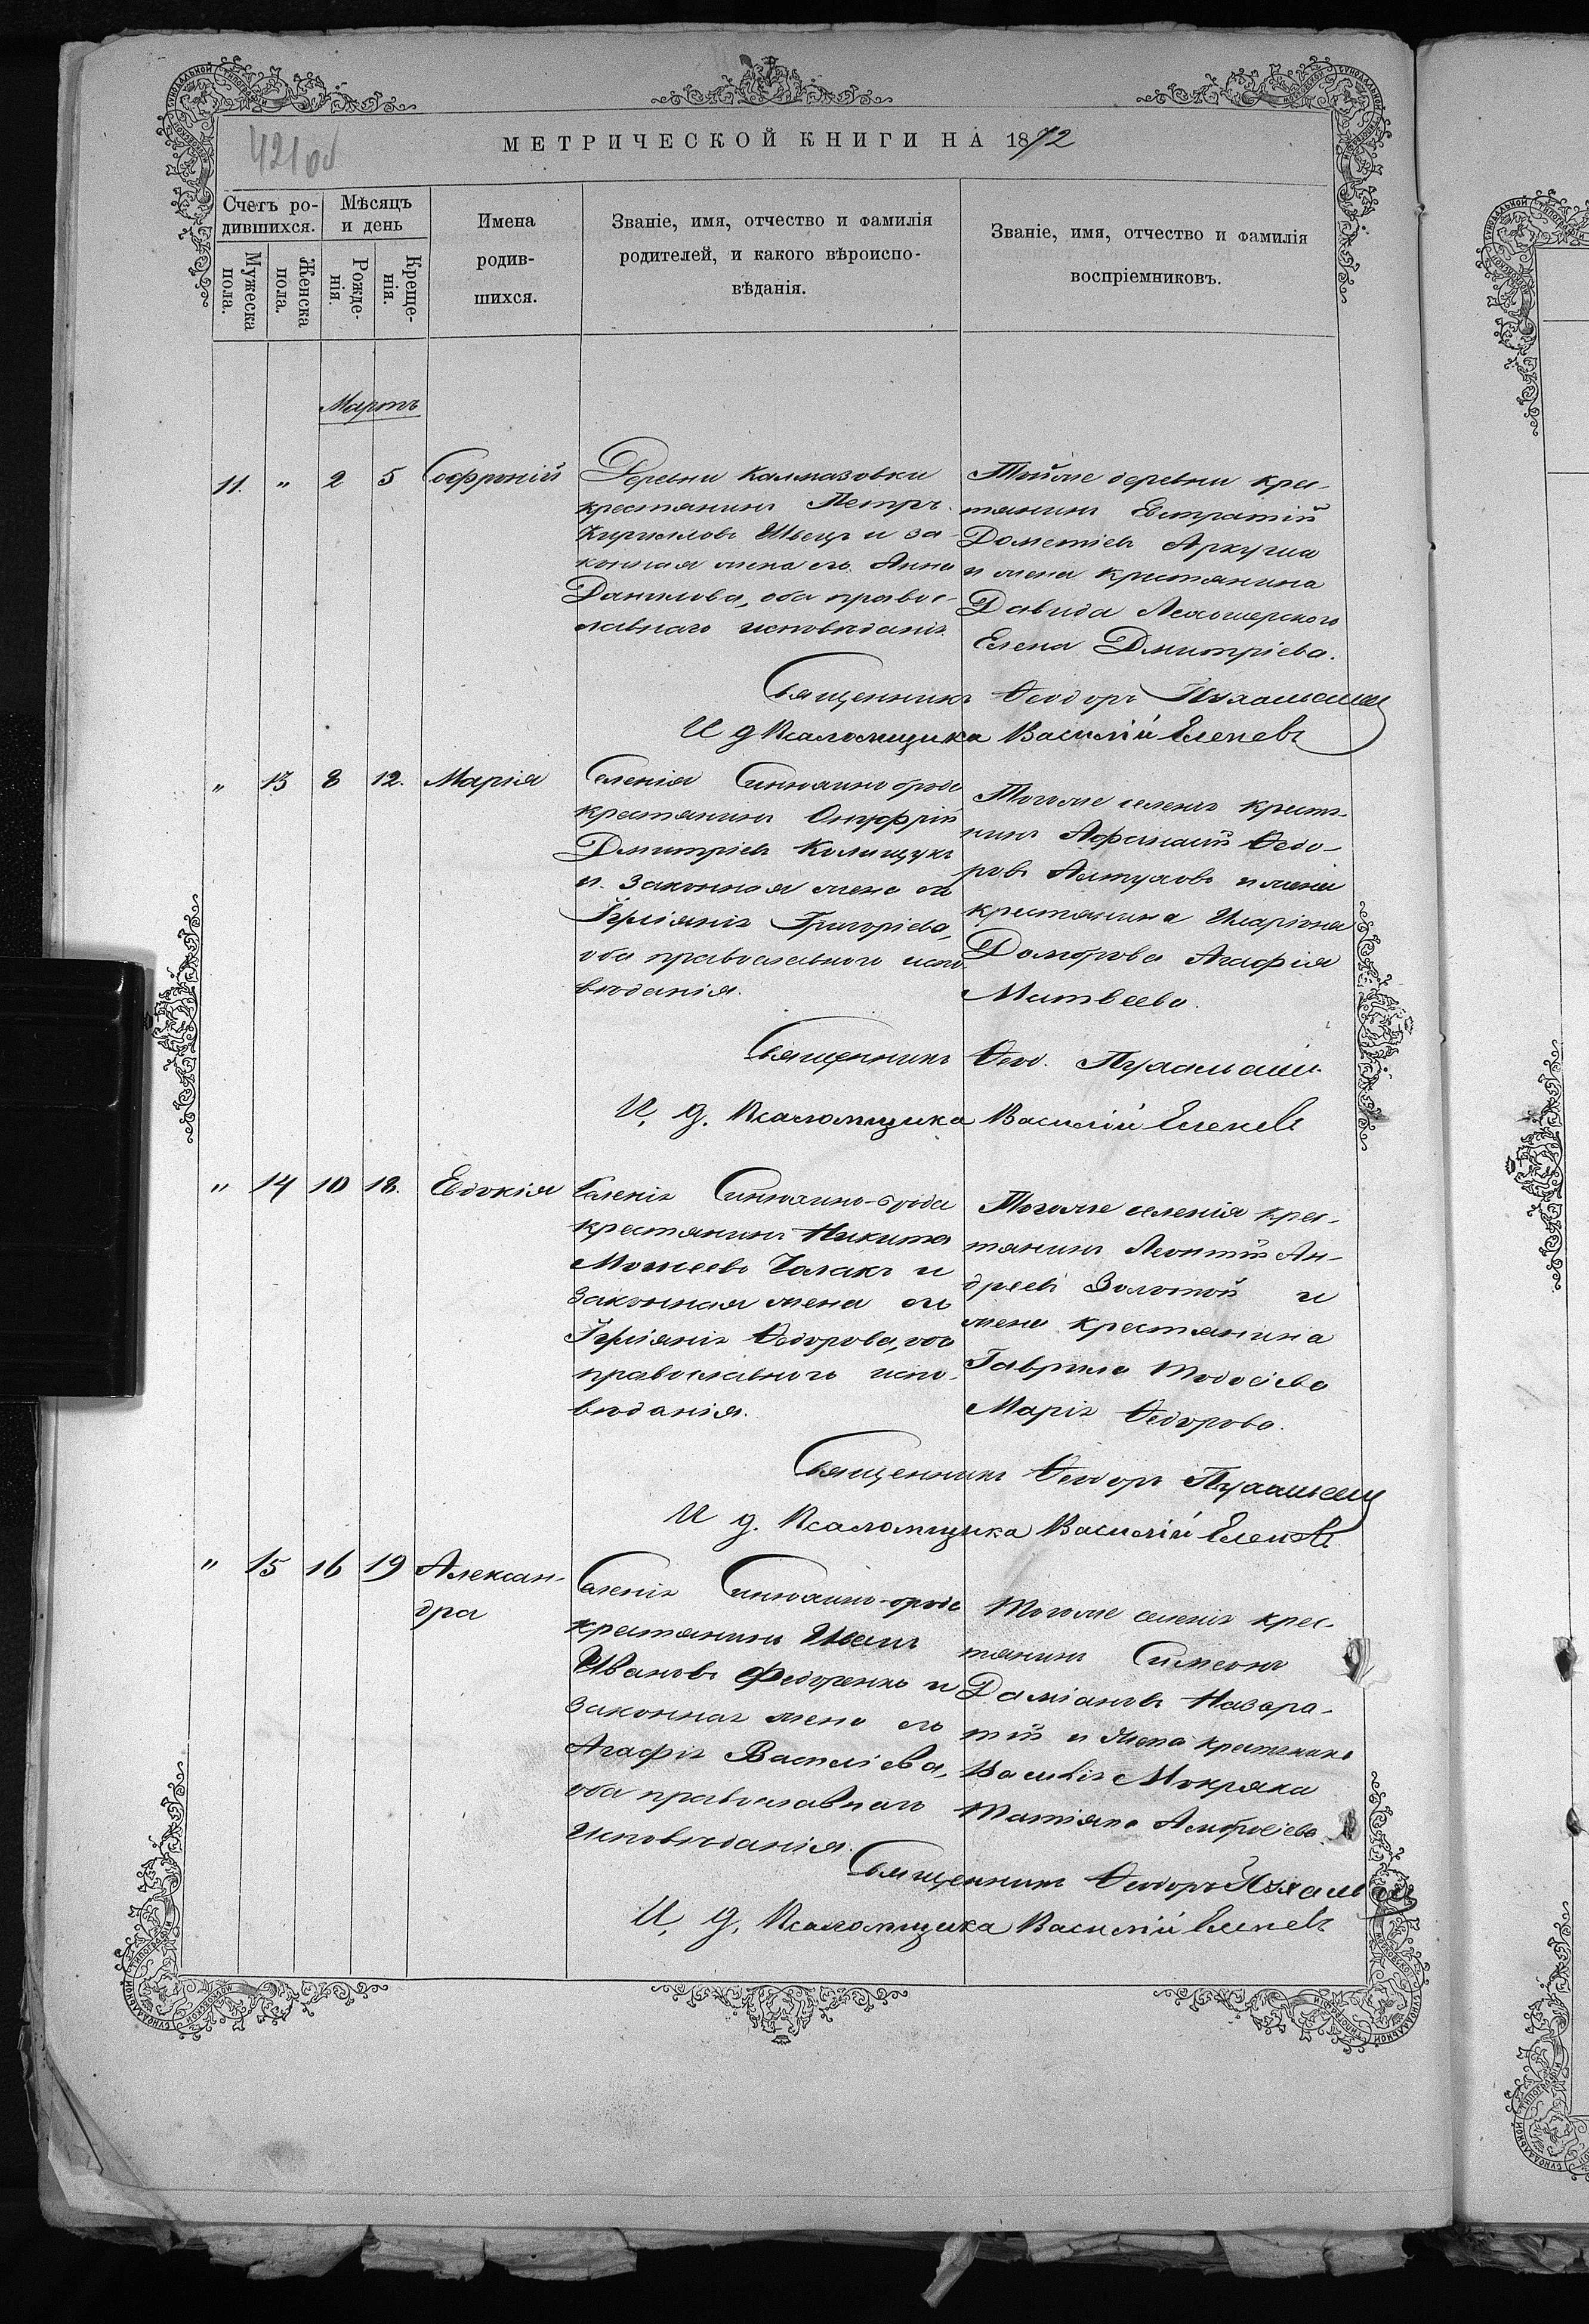 421 об
МЕТРИЧЕСКОЙ КНИГИ НА 1872
Счетъ ро-
дившихся.
Мѣсяцъ
и день
Мужеска
пола.
Женска
пола.
Рожде-
нія.
Креще-
нія.
Имена
родив-
шихся.
Званіе, имя, отчество и фамилія
родителей, и какого вѣроиспо-
вѣданія.
Званіе, имя, отчество и фамилія
воспріемниковъ.
Мартъ
11. " 2 5 Софроній
Деревни Калмазовки
крестьянинъ Петръ
Кирилловъ Швецъ и за-
конная жена его Анна
Данилова, оба правос-
лавнаго исповѣданія
Тойже деревни крес-
тянинъ Евстратій
Дометіевъ Аркуша
и жена крестянина
Давида
Елена Дмитріева.
Священникъ Ѳеодоръ Пухальскій
И д Псаломщика Василій Еленевъ
" 13 8 12. Марія
Селенія Синюхино брода
крестянинъ Онуфрій
Дмитріевъ Колищукъ
и законная жена его
Іуліанія Григоріева,
оба православнаго испо-
вѣданія.
Тогоже селенія крестя-
нинъ Афанасій Ѳедо-
ровъ Алтуховъ и жена
крестянина Иларіона
Агафія
Матвеева.
Священникъ Ѳеод. Пухальскій
И, д. Псаломщика Василій Еленевъ
" 14 10 18. Евдокія
Селенія Синюхино-брода
крестянинъ Никита
Моисеевъ Чолакъ и
законная жена его
Іуліанія Ѳедорова, оба
православнаго испо-
вѣданія.
Тогоже селенія крес-
тянинъ Леонтій Ан-
дреевъ Золотой и
жена крестянина
Гаврила Тодосіева
Марія Ѳедорова.
Священникъ Ѳеодоръ Пухальскій
И д. Псаломщика Василій Еленевъ
" 15 16 19 Алексан-
дра
Селенія Синюхино-брода
крестянинъ Иванъ
Ивановъ Федоренко и
законная жена его
Агафія Василіева,
оба православнаго
исповѣданія.
Тогоже селенія крес-
тянинъ Симеонъ
Даміановъ Назара-
тій и жена крестянина
Василія Мокряка
Татіяна Амбросіева.
Священникъ Ѳеодоръ Пухальскій
И, д, Псаломщика Василій Еленевъ